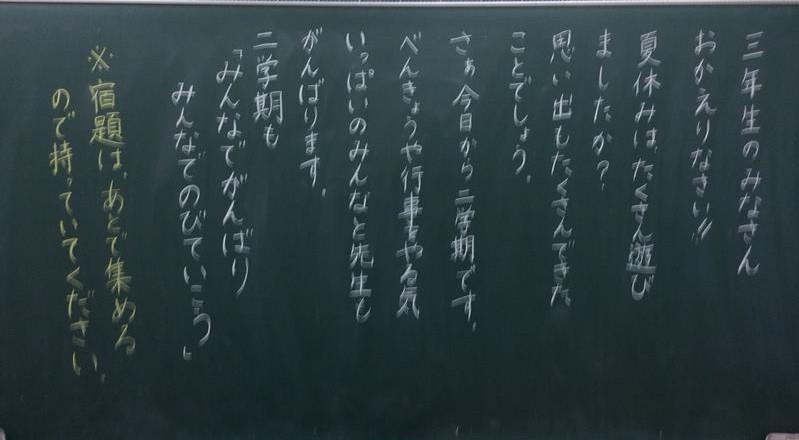 三年生のみなさん
おかえりなさい!!
夏休みは、たくさん遊び
ましたか?
思い出もたくさんできた
ことでしょう。
さぁ今日から二学期です。
べんきょうや行事をやる気
いっぱいのみんなと先生も
がんばります。
二学期も
「みんなでがんばり
みんなでのびていこう」
※宿題は、あとで集める
ので持っていてください。